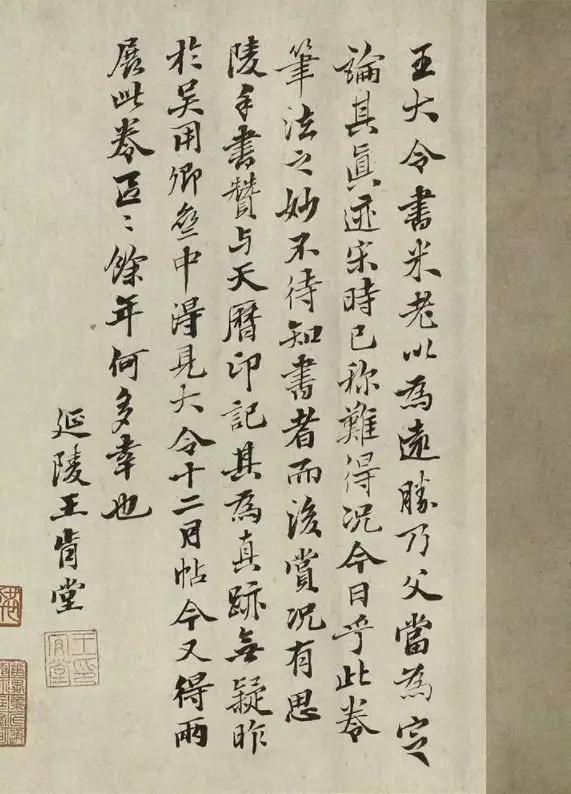 王大令書米老以為遠勝乃父當為定
論其真迹宋時已称難得况今日乎此卷
筆法之妙不待知書者而後賞况有思
陵手書贊与天曆印記其為真跡無疑昨
於吴用卿𠙚中得見大令十二月帖今又得兩
展此卷区〻餘年何多幸也
延陵王肯堂